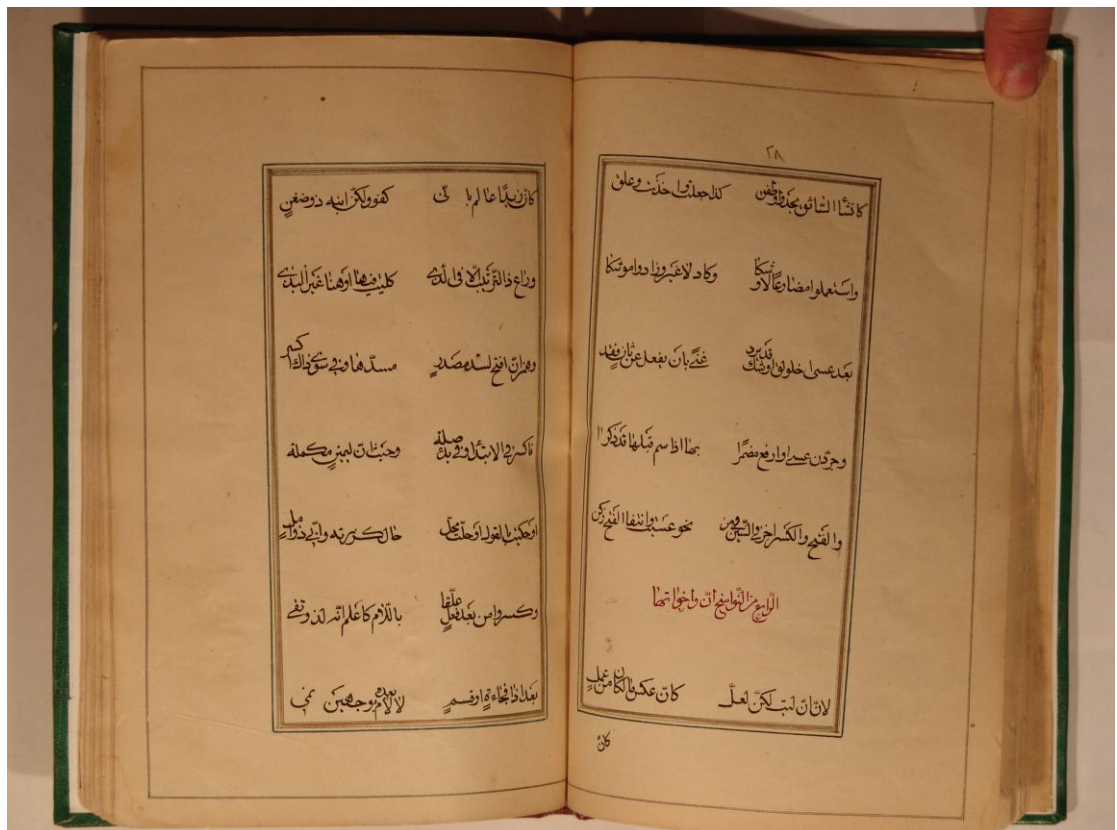 ٢٨
كانشأ السائق يحدو وطفق كذا جعلت واخذت وعلق
واستعملوا مضارعا لاوشكا وكاد لاغير وزادوا موشكا
بعد عسى اخلولق اوشك قد يرد غنى بان يفعل عن ثان فقد
وجردن عسى او ارفع مضمرا بها اذا اسم قبلها قد ذكرا
والفتح والكسر اجز في السين من نحو عسيت وانتقا الفتح زكن
الرابع من النواسخ ان واخواتها
لان ان ليت لكن لعل كان عكس ما لكان من عمل
كان
كان زيدا عالم باني كفو ولكن ابنه ذو ضغن
وراع ذا الترتيب الا في الذي كليت فيها او هنا غير البذي
وهمز ان افتح لسد مصدر مسدها وفي سوى ذاك اكسر
فاكسر في الابتدا وفي بدء صله وحيث ان ليمين مكمله
او حكيت بالقول او حلت محل حال كزرته واني ذو امل
وكسروا من بعد فعل علقا باللام كاعلم انه لذو تقى
بعد اذا فجاءة او قسم لا لام بعده بوجهين نمي